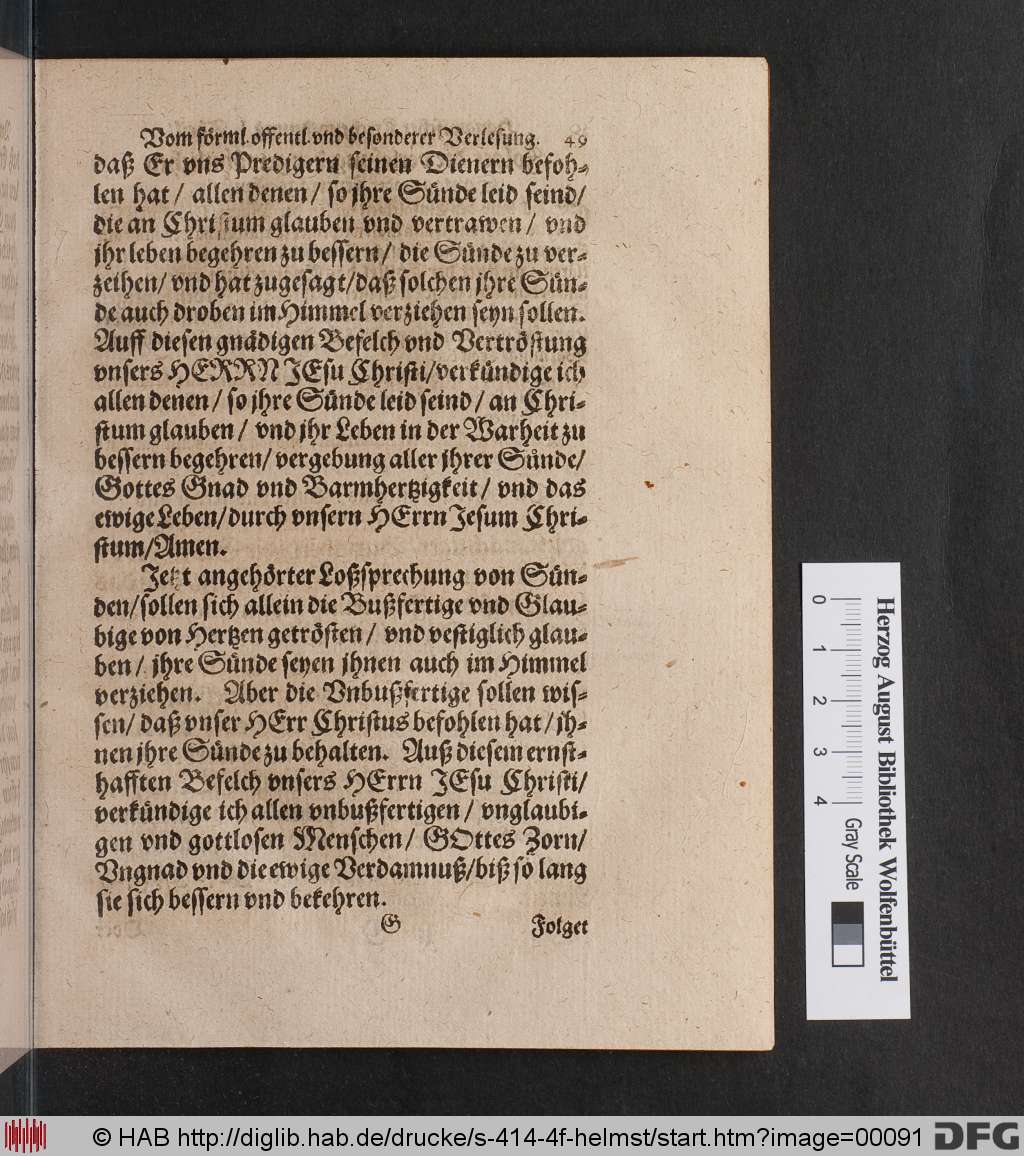 Vom förml. offentl. vnd besonderer Verlesung. 49
daß Er vns Predigern seinen Dienern befoh-
len hat / allen denen / so jhre Sünde leid seind/
die an Christum glauben vnd vertrawen / vnd
jhr leben begehren zu bessern / die Sünde zu ver-
zeihen/ vnd hat zugesagt/daß solchen jhre Sün-
de auch droben im Himmel verziehen seyn sollen.
Auff diesen gnädigen Befelch vnd Vertröstung
vnsers HERRN JEsu Christi/verkündige ich
allen denen / so jhre Sünde leid seind / an Chri-
stum glauben / vnd jhr Leben in der Warheit zu
bessern begehren/ vergebung aller jhrer Sünde/
Gottes Gnad vnd Barmhertzigkeit / vnd das
ewige Leben/durch vnsern HErrn Jesum Chri-
stum/Amen.
Jetzt angehörter Loßsprechung von Sün-
den/sollen sich allein die Bußfertige vnd Glau-
bige von Hertzen getrösten / vnd vestiglich glau-
ben / jhre Sünde seyen jhnen auch im Himmel
verziehen. Aber die Vnbußfertige sollen wis-
sen/ daß vnser HErr Christus befohlen hat / jh-
nen jhre Sünde zu behalten. Auß diesem ernst-
hafften Befelch vnsers HErrn JEsu Christi/
verkündige ich allen vnbußfertigen / vnglaubi-
gen vnd gottlosen Menschen/ GOttes Zorn/
Vngnad vnd die ewige Verdamnuß/biß so lang
sie sich bessern vnd bekehren.
G Folget
Herzog August Bibliothek Wolfenbüttel
0 1 2 3 4 Gray Scale
© HAB http://diglib.hab.de/drucke/s-414-4f-helmst/start.htm?image=00091 DFG